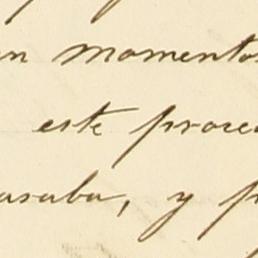 un momento
este proce
asaba, y p